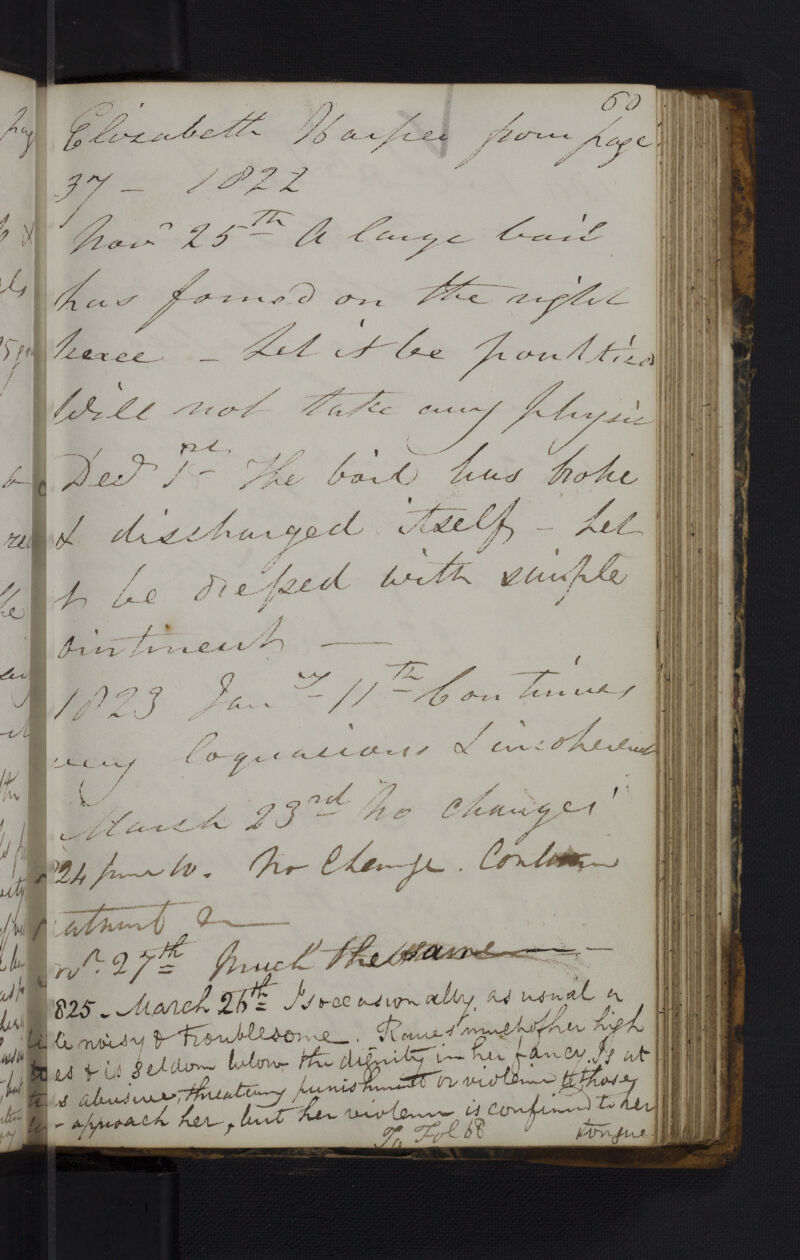 60
Elizabeth Harper from page
37 – 1822
Novr 25th A large boil
has formed on the right
knee – Let it be poulticed
Will not take any Physic
Decr 1st The boil has broke
& discharged itself – Let
it be dressed with simple
ointment —
1823 Jany 11th Continues
very loquacious & incoherent
March 23rd No change
1824 June 10. No Change. Continue
treatment &c
Novr. 27th Much the same
1825 – March 26th Is occasionally, as usual a
little noisy & troublesome. Raves much of her high
& is seldom below the dignity in her fancy. Is at
times abusive, threatening punishment or violence to those
approach her, but her violence is confined to her
tongue.
To Fol 68